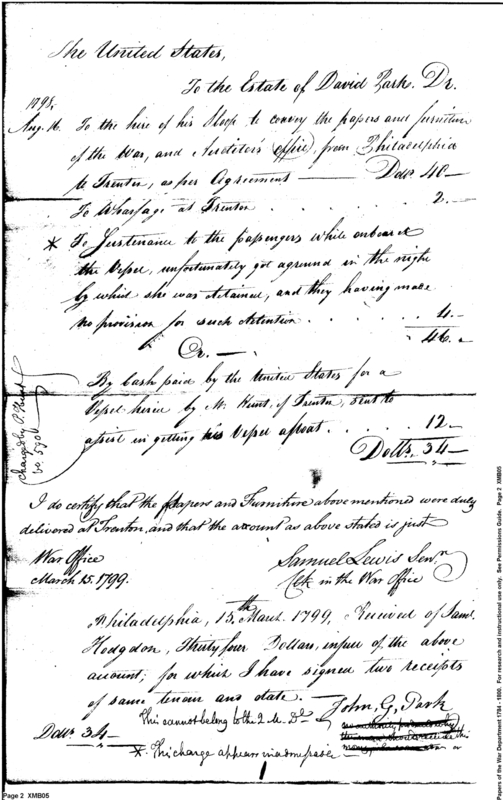 The United States,
To the Estate of David Park. Dr.
1798,
Aug. 16. To the hire of his Sloop to convey the papers and furniture
of the War, and Auditor's office, from Philadelphia
to Trenton, as per Agreement — Dolls. 40 —
To Wharfage at Trenton . . . . . 2. —
* To Sustenance to the passengers while onboard
the Vessel, unfortunately got aground in the night
by which she was detained, and they having made
no provision for such detention . . . . . 4. —
46. —
Cr. —
By Cash paid by the United States for a
Vessel hired by Mr. Hunt, of Trenton, sent to
assist in getting his Vessel afloat . . . . . 12. —
Dolls. 34 —
charged by
I do certify that the Papers and Furniture above mentioned were duly
delivered at Trenton, and that the account as above stated is just
War Office
March 15. 1799.
Samuel Lewis Senr.
Clk in the War Office
Philadelphia, 15th March 1799, Received of Saml.
Hodgdon, Thirty four Dollars, in full of the above
account; for which I have signed two receipts
of same tenour and date. —
John, G, Park
Dolls. 34 —
This cannot belong to the Q. M. Dt.
* This charge appears inadmissable
Page 2 XMB05
Papers of the War Department 1784 - 1800. For research and instructional use only. See Permissions Guide. Page 2 XMB05